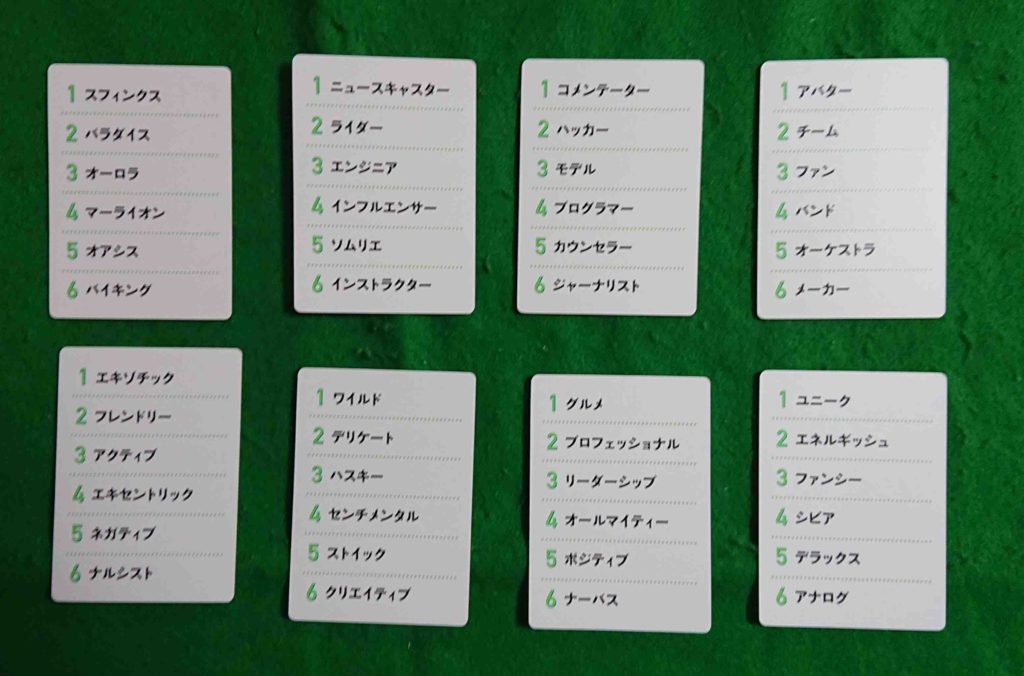 1 スフィンクス
2 パラダイス
3 オーロラ
4 マーライオン
5 オアシス
6 バイキング
1 ニュースキャスター
2 ライダー
3 エンジニア
4 インフルエンサー
5 ソムリエ
6 インストラクター
1 コメンテーター
2 ハッカー
3 モデル
4 プログラマー
5 カウンセラー
6 ジャーナリスト
1 アバター
2 チーム
3 ファン
4 バンド
5 オーケストラ
6 メーカー
1 エキゾチック
2 フレンドリー
3 アクティブ
4 エキセントリック
5 ネガティブ
6 ナルシスト
1 ワイルド
2 デリケート
3 ハスキー
4 センチメンタル
5 ストイック
6 クリエイティブ
1 グルメ
2 プロフェッショナル
3 リーダーシップ
4 オールマイティー
5 ポジティブ
6 ナーバス
1 ユニーク
2 エネルギッシュ
3 ファンシー
4 シビア
5 デラックス
6 アナログ